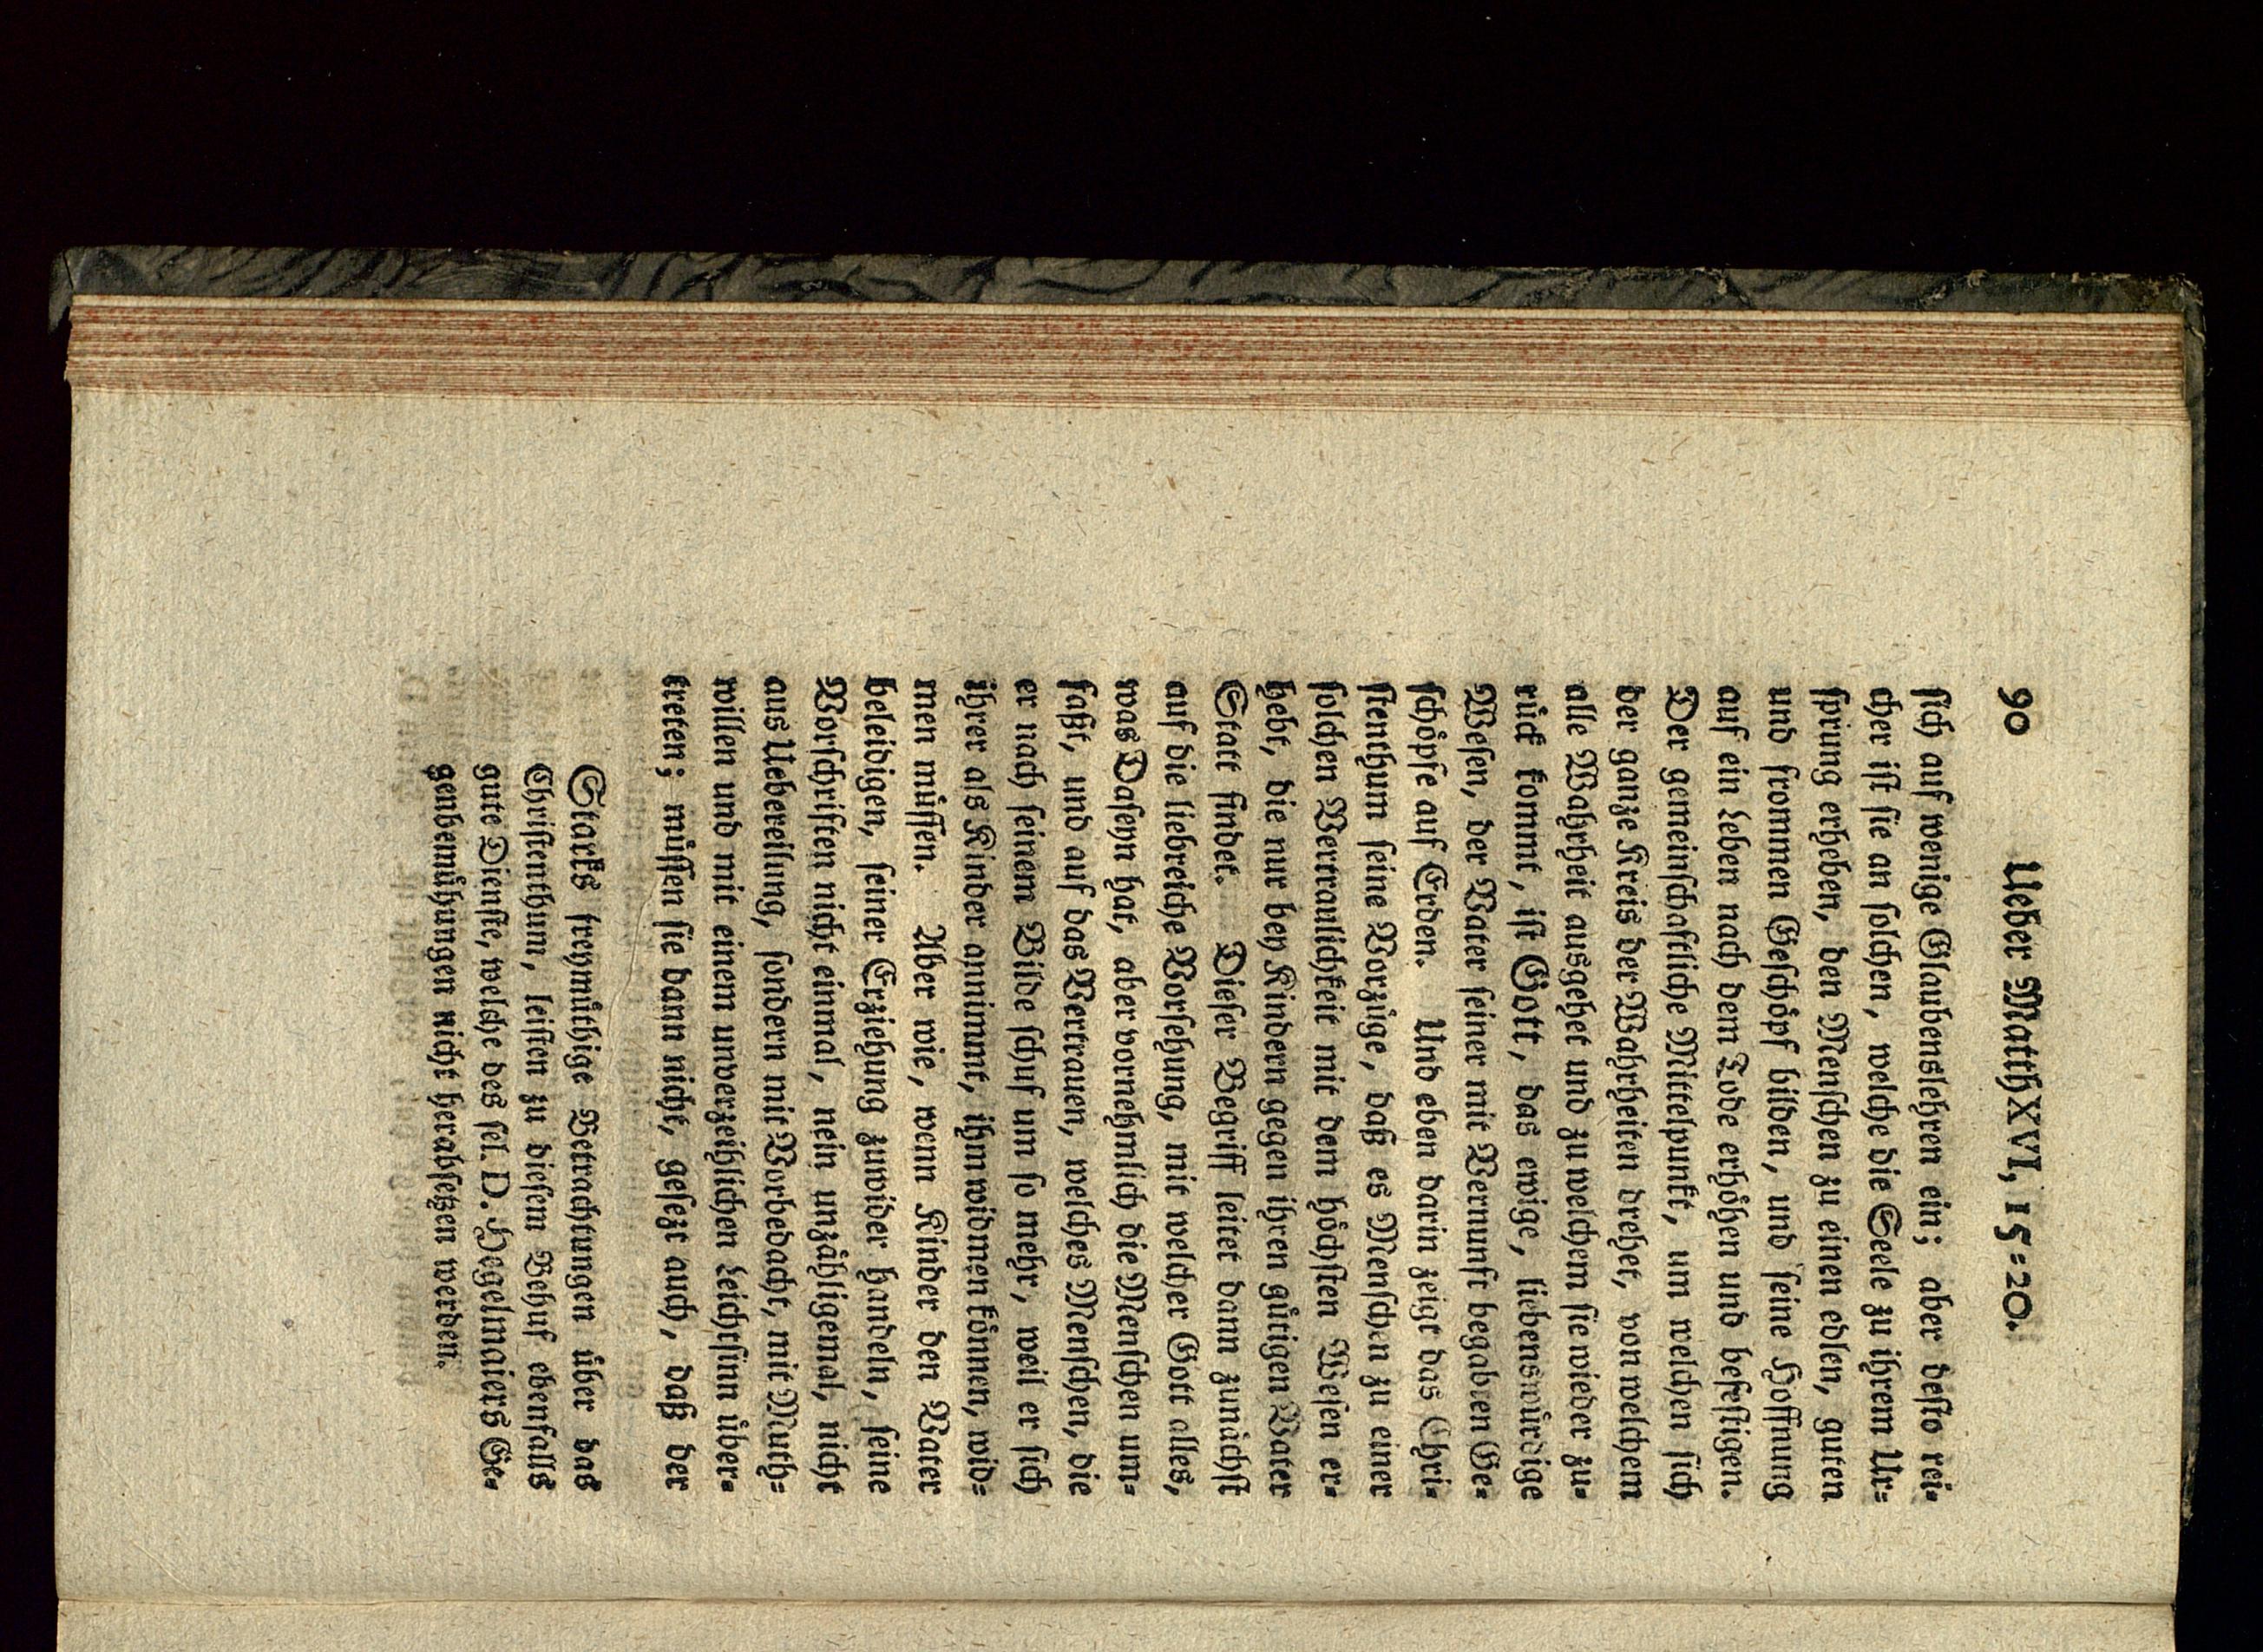 90 Ueber Matth XVI, 15=20.
ſich auf wenige Glaubenslehren ein; aber deſto rei-
cher iſt ſie an ſolchen, welche die Seele zu ihrem Ur=
ſprung erheben, den Menſchen zu einen edlen, guten
und frommen Geſchöpf bilden, und ſeine Hoffnung
auf ein Leben nach dem Tode erhöhen und befeſtigen.
Der gemeinſchaftliche Mittelpunkt, um welchen ſich
der ganze Kreis der Wahrheiten drehet, von welchem
alle Wahrheit ausgehet und zu welchem ſie wieder zu-
rück kommt, iſt Gott, das ewige, liebenswürdige
Weſen, der Vater ſeiner mit Vernunft begabten Ge-
ſchöpfe auf Erden. Und eben darin zeigt das Chri-
ſtenthum ſeine Vorzüge, daß es Menſchen zu einer
ſolchen Vertraulichkeit mit dem höchſten Weſen er-
hebt, die nur bey Kindern gegen ihren gütigen Vater
Statt findet. Dieſer Begriff leitet dann zunächſt
auf die liebreiche Vorſehung, mit welcher Gott alles,
was Daſeyn hat, aber vornehmlich die Menſchen um-
faßt, und auf das Vertrauen, welches Menſchen, die
er nach ſeinem Bilde ſchuf um ſo mehr, weil er ſich
ihrer als Kinder annimmt, ihm widmen können, wid=
men müſſen. Aber wie, wenn Kinder den Vater
beleidigen, ſeiner Erziehung zuwider handeln, ſeine
Vorſchriften nicht einmal, nein unzähligemal, nicht
aus Uebereilung, ſondern mit Vorbedacht, mit Muth=
willen und mit einem unverzeihlichen Leichtſinn über-
treten; müſſen ſie dann nicht, geſezt auch, daß der
Starks freymüthige Betrachtungen über das
Chriſtenthum, leiſten zu dieſem Behuf ebenfalls
gute Dienſte, welche des ſel. D. Hegelmaiers Ge-
genbemühungen nicht herabſetzen werden.